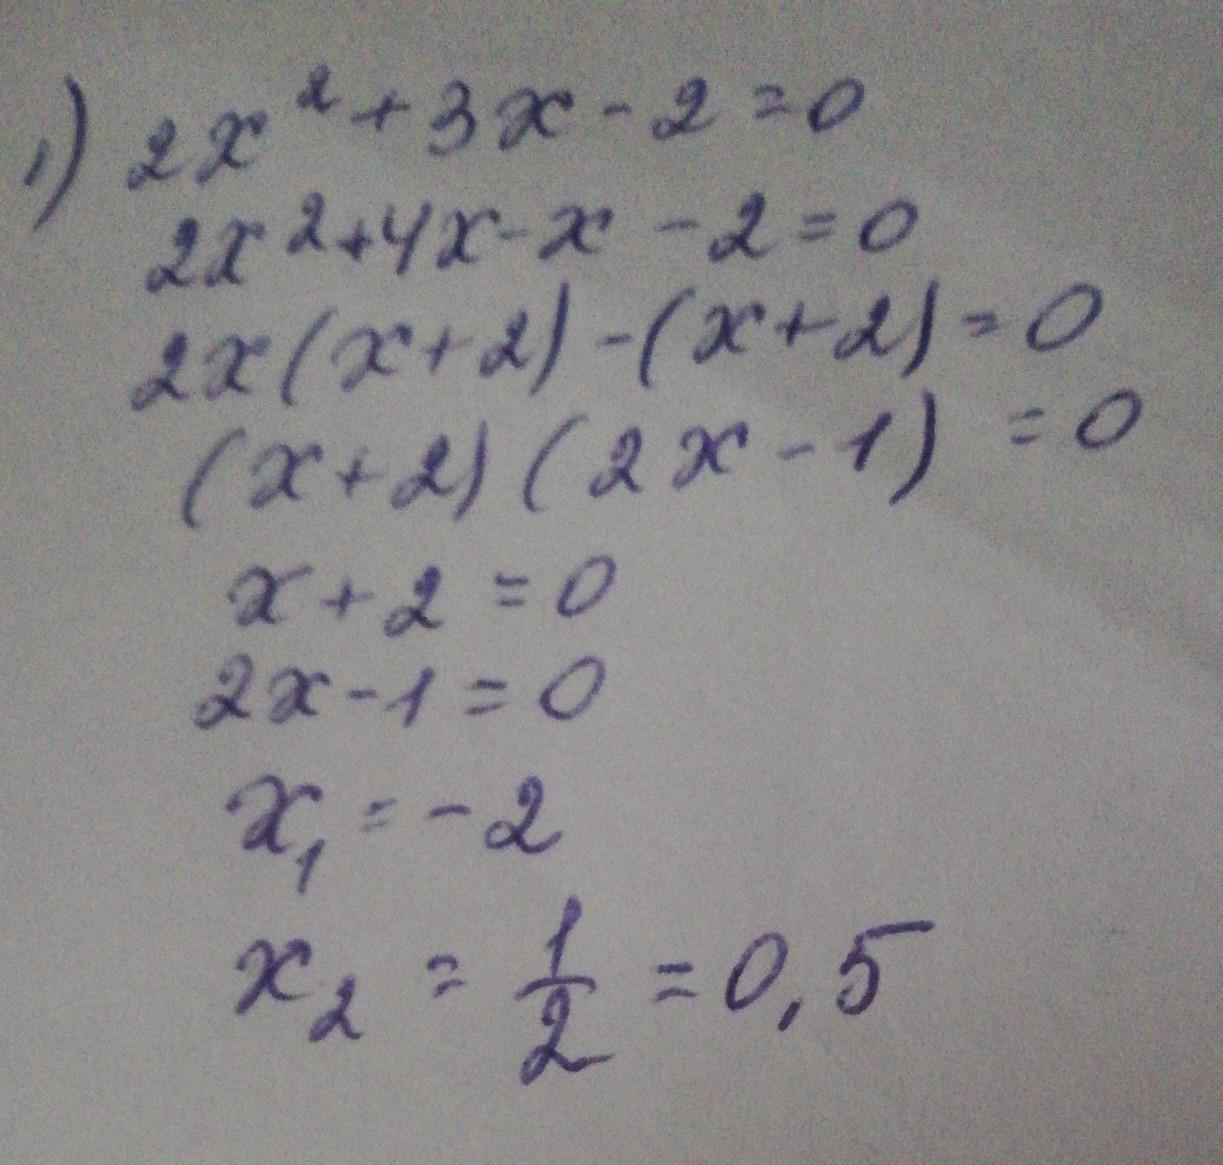 1) 2x² + 3x - 2 = 0
2x² + 4x - x - 2 = 0
2x(x + 2) - (x + 2) = 0
(x + 2)(2x - 1) = 0
x + 2 = 0
2x - 1 = 0
x₁ = -2
x₂ = 1/2 = 0,5